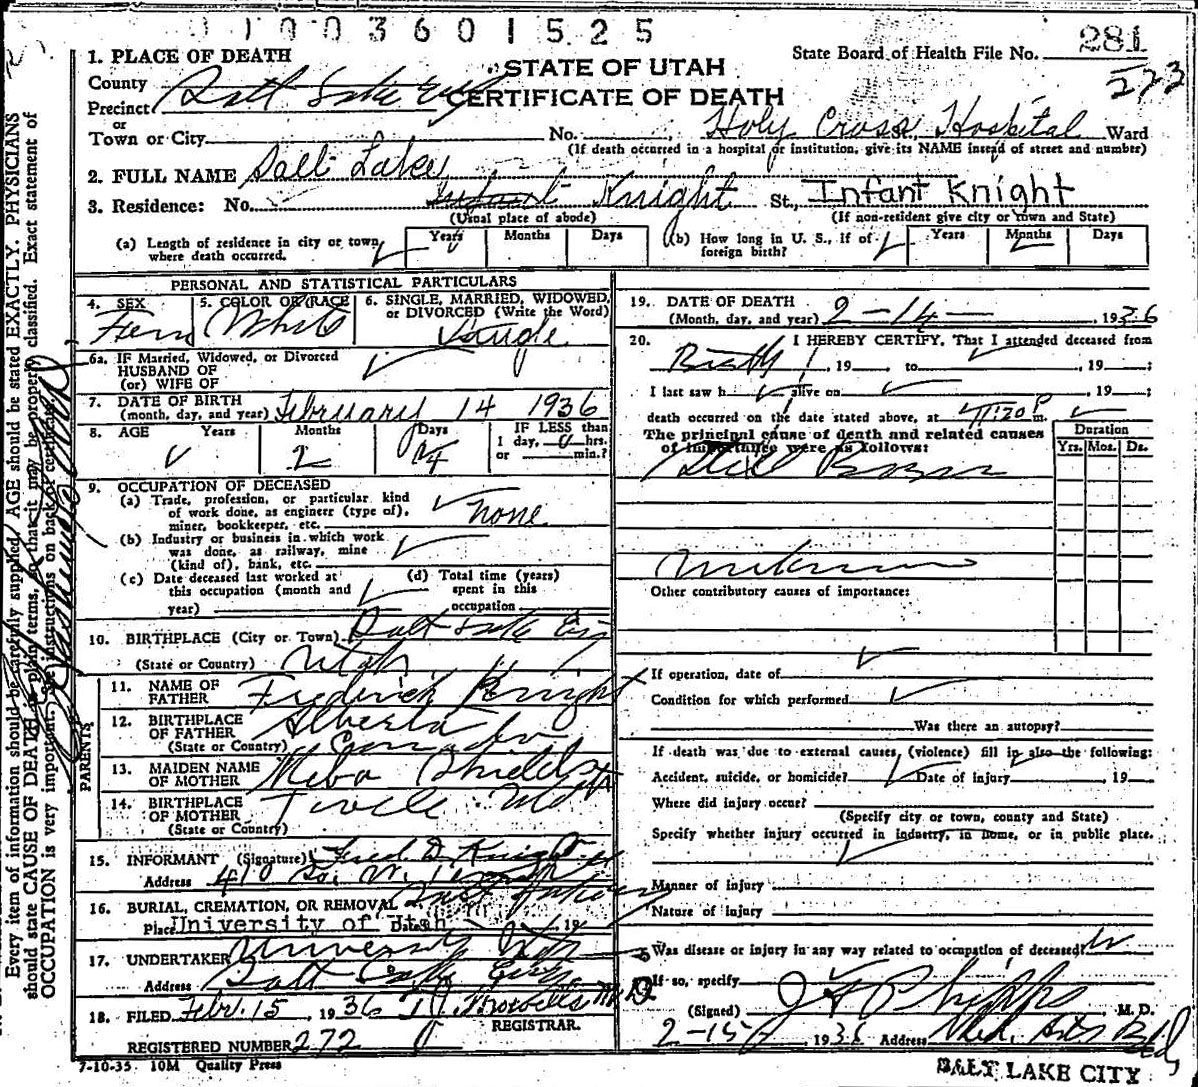 0 1 0 0 3 6 0 1 5 2 5
281
273
1. PLACE OF DEATH
State Board of Health File No.
STATE OF UTAH
CERTIFICATE OF DEATH
County Salt Lake City
Precinct
or
Town or City
Salt Lake
No. Holy Cross Hospital Ward
(If death occurred in a hospital or institution, give its NAME instead of street and number)
2. FULL NAME Infant Knight Infant Knight
3. Residence: No. St.,
(Usual place of abode)
(If non-resident give city or town and State)
(a) Length of residence in city or town where death occurred. Years Months Days
(b) How long in U. S., if of foreign birth? Years Months Days
PERSONAL AND STATISTICAL PARTICULARS
4. SEX Fem
5. COLOR OR RACE White
6. SINGLE, MARRIED, WIDOWED, or DIVORCED (Write the Word) Single
6a. IF Married, Widowed, or Divorced
HUSBAND OF
(or) WIFE OF
7. DATE OF BIRTH
(month, day, and year) February 14 1936
8. AGE Years Months 2 Days 14 IF LESS than
1 day, 0 hrs.
or min.?
9. OCCUPATION OF DECEASED
(a) Trade, profession, or particular kind
of work done, as engineer (type of),
miner, bookkeeper, etc. none
(b) Industry or business in which work
was done, as railway, mine
(kind of), bank, etc.
(c) Date deceased last worked at
this occupation (month and
year)
(d) Total time (years)
spent in this
occupation
10. BIRTHPLACE (City or Town) Salt Lake City
(State or Country) Utah
PARENTS
11. NAME OF
FATHER Frederick Knight
12. BIRTHPLACE
OF FATHER Alberta
(State or Country) Canada
13. MAIDEN NAME
OF MOTHER Melba Shields
14. BIRTHPLACE
OF MOTHER
(State or Country)
15. INFORMANT (Signature) Fred D Knight
Address 410 So. W. Temple
16. BURIAL, CREMATION, OR REMOVAL
Place University of Utah Date 19
17. UNDERTAKER University Utah
Address Salt Lake City
18. FILED Febr. 15, 1936
REGISTRAR.
REGISTERED NUMBER 272
7-10-35 10M Quality Press
19. DATE OF DEATH
(Month, day, and year) 2-14-, 1936
20. I HEREBY CERTIFY, That I attended deceased from
Birth, 19 to , 19 ;
I last saw h alive on , 19 ;
death occurred on the date stated above, at 11:20 P m.
The principal cause of death and related causes
of importance were as follows:
Duration
Yrs. Mos. Ds.
Still Born
Unknown
Other contributory causes of importance:
If operation, date of
Condition for which performed
Was there an autopsy?
If death was due to external causes, (violence) fill in also the following:
Accident, suicide, or homicide? Date of injury , 19
Where did injury occur?
(Specify city or town, county and State)
Specify whether injury occurred in industry, in home, or in public place.
Manner of injury
Nature of injury
Was disease or injury in any way related to occupation of deceased? No
If so, specify
(Signed) Phipps M. D.
2-15, 1936 Address Med. Arts Bldg
SALT LAKE CITY
Every item of information should be carefully supplied. AGE should be stated EXACTLY. PHYSICIANS
should state CAUSE OF DEATH in plain terms, so that it may be properly classified. Exact statement of
OCCUPATION is very important. See instructions on back of certificate.